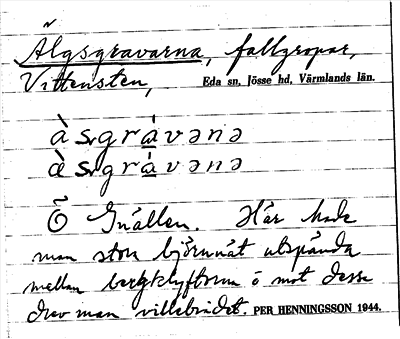 Älgsgravarna, fallgropar,
Vittensten, Eda sn, Jösse hd, Värmlands län.
à sgrávənə
æ̀ sgrávənə
Ö Gnällen. Här hade
man stora björnnät utspända
mellan bergklyftorna ö mot dessa
drev man villebrådet. PER HENNINGSSON 1944.